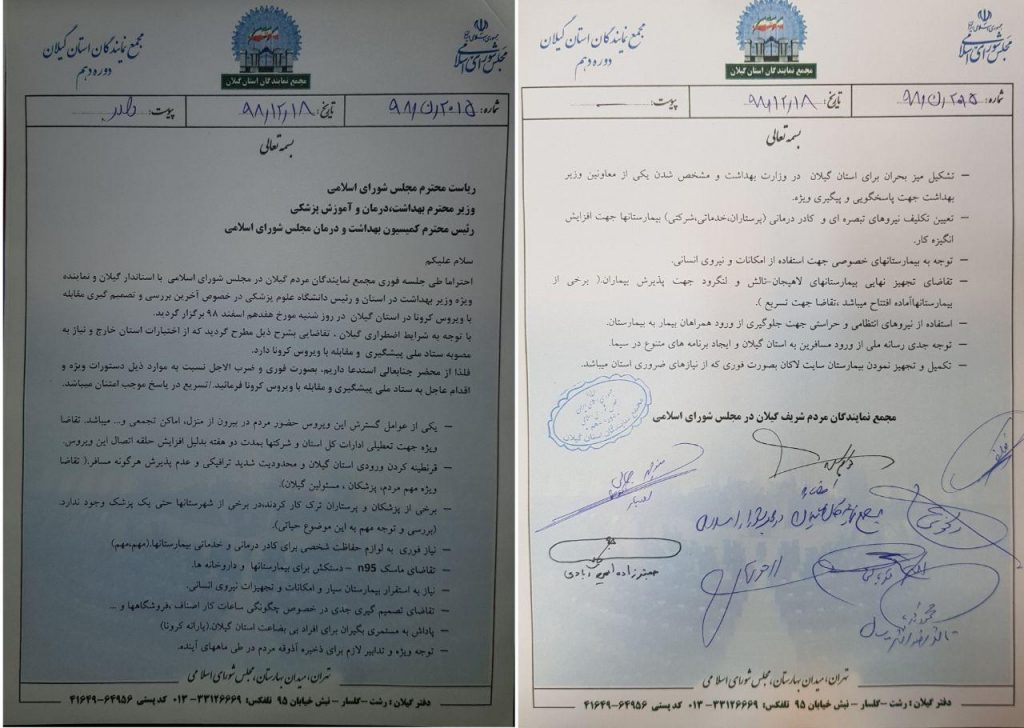 جمهوری اسلامی ایران
مجلس شورای اسلامی
مجمع نمایندگان استان گیلان
مجمع نمایندگان استان گیلان
دوره دهم
شماره: ۹۸/ن/۲۰۱۵
تاریخ: ۹۸/۱۲/۱۸
پیوست: دارد
بسمه تعالی
ریاست محترم مجلس شورای اسلامی
وزیر محترم بهداشت،درمان و آموزش پزشکی
رئیس محترم کمیسیون بهداشت و درمان مجلس شورای اسلامی
سلام علیکم
احتراما طی جلسه فوری مجمع نمایندگان مردم گیلان در مجلس شورای اسلامی با استاندار گیلان و نماینده
ویژه وزیر بهداشت در استان و رئیس دانشگاه علوم پزشکی در خصوص آخرین بررسی و تصمیم گیری مقابله
با ویروس کرونا در استان گیلان در روز شنبه مورخ هفدهم اسفند ۹۸ برگزار گردید.
با توجه به شرایط اضطراری گیلان ، تقاضایی بشرح ذیل مطرح گردید که از اختیارات استان خارج و نیاز به
مصوبه ستاد ملی پیشگیری و مقابله با ویروس کرونا دارد.
فلذا از محضر جنابعالی استدعا داریم، بصورت فوری و ضرب الاجل نسبت به موارد ذیل دستورات ویژه و
اقدام عاجل به ستاد ملی پیشگیری و مقابله با ویروس کرونا فرمائید./تسریع در پاسخ موجب امتنان میباشد.
– یکی از عوامل گسترش این ویروس حضور مردم در بیرون از منزل، اماکن تجمعی و... میباشد. تقاضا
ویژه جهت تعطیلی ادارات کل استان و شرکتها بمدت دو هفته بدلیل افزایش حلقه اتصال این ویروس.
– قرنطینه کردن ورودی استان گیلان و محدودیت شدید ترافیکی و عدم پذیرش هرگونه مسافر.( تقاضا
ویژه مهم مردم، پزشکان ، مسئولین گیلان).
– برخی از پزشکان و پرستاران ترک کار کردند،در برخی از شهرستانها حتی یک پزشک وجود ندارد.
(بررسی و توجه مهم به این موضوع حیاتی).
– نیاز فوری به لوازم حفاظت شخصی برای کادر درمانی و خدماتی بیمارستانها.(مهم،مهم)
– تقاضای ماسک n95 – دستکش برای بیمارستانها و داروخانه ها.
– نیاز به استقرار بیمارستان سیار و امکانات و تجهیزات نیروی انسانی.
– تقاضای تصمیم گیری جدی در خصوص چگونگی ساعات کار اصناف ،فروشگاهها و ...
– پاداش به مستمری بگیران برای افراد بی بضاعت استان گیلان.(یارانه کرونا)
– توجه ویژه و تدابیر لازم برای ذخیره آذوقه مردم در طی ماههای آینده.
تهران، میدان بهارستان، مجلس شورای اسلامی
دفتر گیلان : رشت – گلسار – نبش خیابان ۹۵ تلفکس: ۳۳۱۲۶۶۶۹–۰۱۳ کد پستی ۶۴۹۵۶–۴۱۶۴۹
جمهوری اسلامی ایران
مجلس شورای اسلامی
مجمع نمایندگان استان گیلان
مجمع نمایندگان استان گیلان
دوره دهم
شماره: ۹۸/ن/۲۰۱۵
تاریخ: ۹۸/۱۲/۱۸
پیوست:
بسمه تعالی
– تشکیل میز بحران برای استان گیلان در وزارت بهداشت و مشخص شدن یکی از معاونین وزیر
بهداشت جهت پاسخگویی و پیگیری ویژه.
– تعیین تکلیف نیروهای تبصره ای و کادر درمانی (پرستاران،خدماتی،شرکتی) بیمارستانها جهت افزایش
انگیزه کار.
– توجه به بیمارستانهای خصوصی جهت استفاده از امکانات و نیروی انسانی.
– تقاضای تجهیز نهایی بیمارستانهای لاهیجان-تالش و لنگرود جهت پذیرش بیماران.( برخی از
بیمارستانهاآماده افتتاح میباشد ،تقاضا جهت تسریع ).
– استفاده از نیروهای انتظامی و حراستی جهت جلوگیری از ورود همراهان بیمار به بیمارستان.
– توجه جدی رسانه ملی از ورود مسافرین به استان گیلان و ایجاد برنامه های متنوع در سیما.
– تکمیل و تجهیز نمودن بیمارستان سایت لاکان بصورت فوری که از نیازهای ضروری استان میباشد.
مجمع نمایندگان مردم شریف گیلان در مجلس شورای اسلامی
تهران، میدان بهارستان، مجلس شورای اسلامی
دفتر گیلان : رشت – گلسار – نبش خیابان ۹۵ تلفکس: ۳۳۱۲۶۶۶۹–۰۱۳ کد پستی ۶۴۹۵۶–۴۱۶۴۹